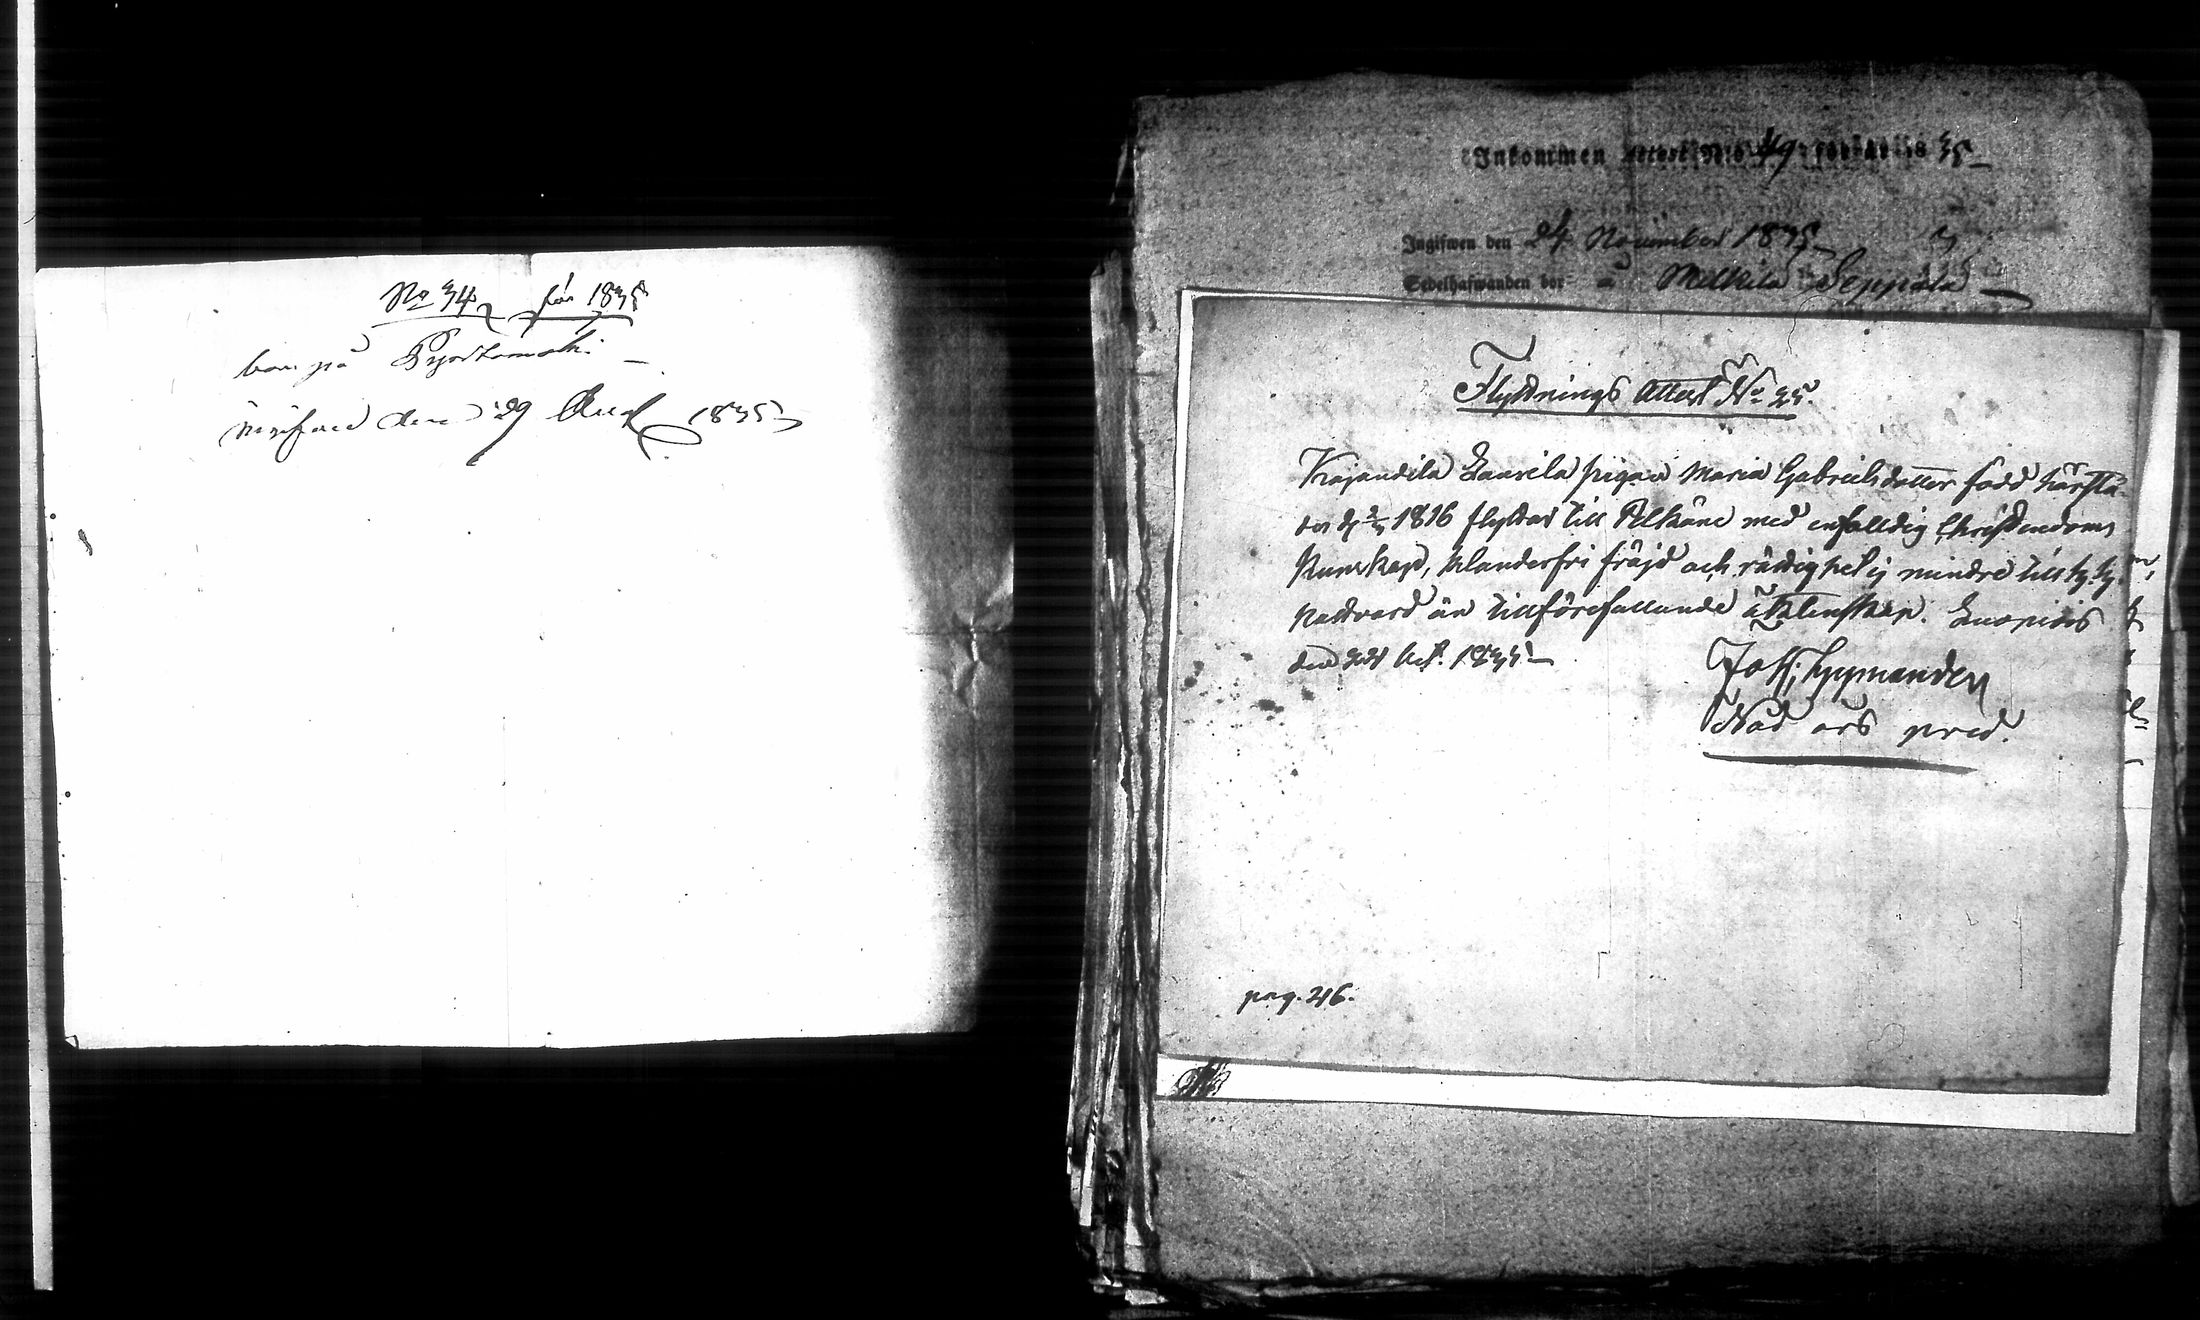 No 34 för 1835
bor på
ingifven den 29 Aug 1835
Inkommen Attest N:o 49 för år 1835
Ingifwen den 24 November 1835
Sedelhafwanden bor å Mälkilä Seppälä
Flyttnings Attest No 35.
Kajandila Laurila pigan Maria Gabrielsdotter född härstä-
des d 1816 flyttar till Pelkäne med enfalldig Christendoms
Kunskap, klanderfri fräjd och rättighet ej mindre till h.h.
nattvard än tillförefallande äktenskap. Kuopiois
den Oct. 1835.
Joh. Hymander
Nåd års pred.
pag. 216.